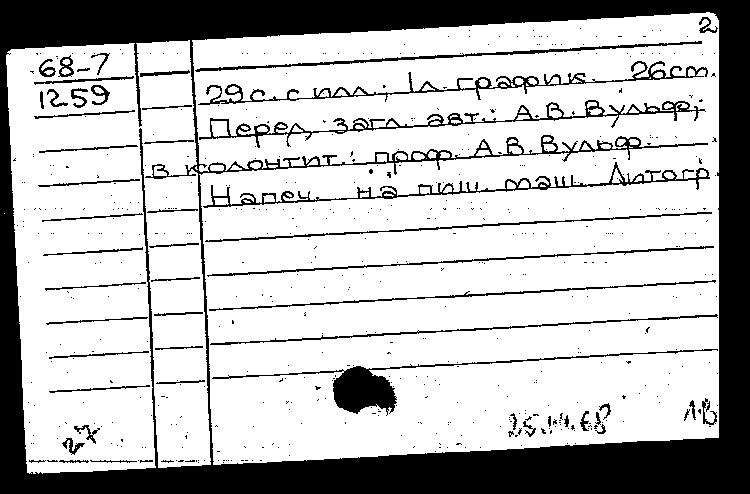 2
68-7
1259
29 с. с илл.; 1 л. график. 26 см.
Перед загл. авт.: А.В. Вульф;
в колонтит.: проф. А.В. Вульф.
Напеч. на пиш. маш. Литогр.
27